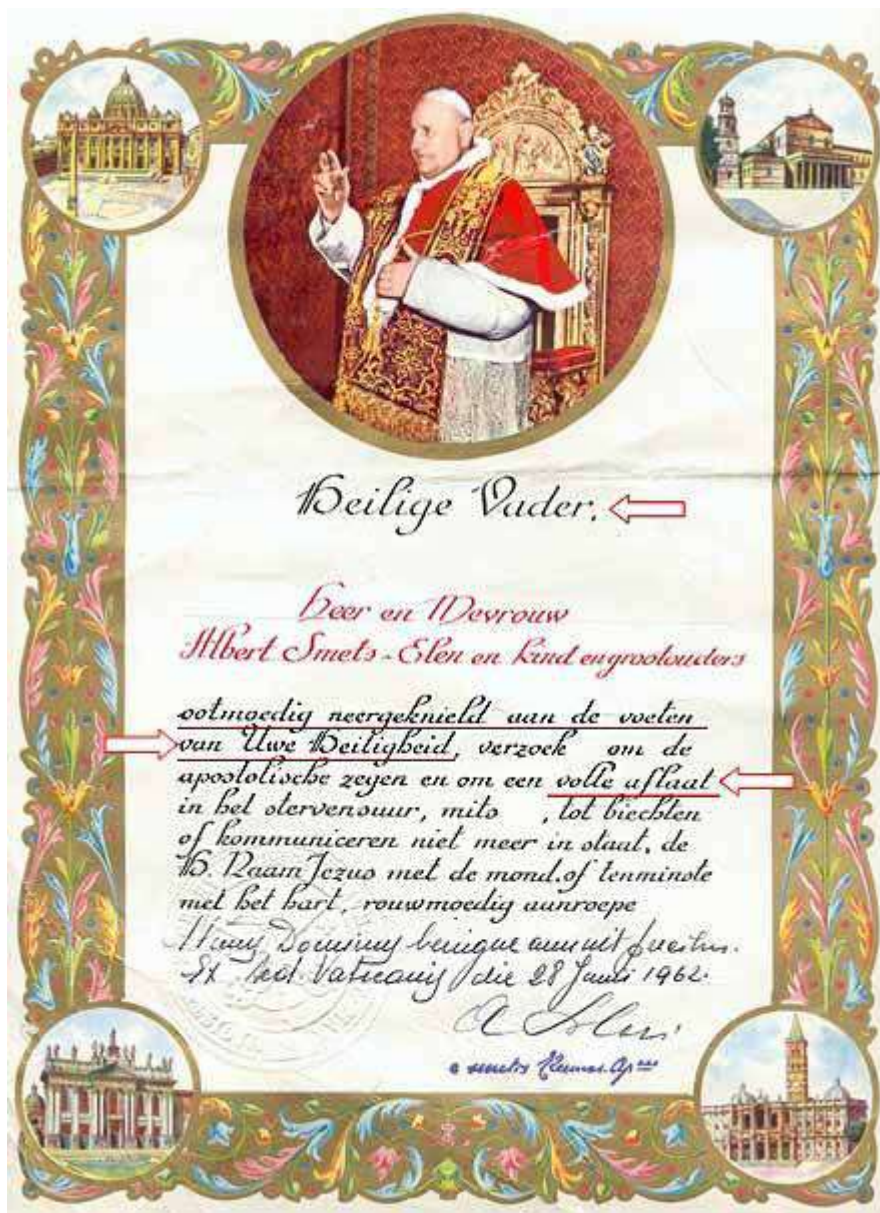 Heilige Vader,
Heer en Mevrouw
Albert Smets-Elen en kind en grootouders
ootmoedig neergeknield aan de voeten
van Uwe Heiligheid, verzoek om de
apostolische zegen en om een volle aflaat
in het stervensuur, mits , tot biechten
of kommuniceren niet meer in staat, de
H. Naam Jezus met de mond, of tenminste
met het hart, rouwmoedig aanroepe
Dominus benigne annuit precibus.
Vaticanis die 28 Junii 1962.